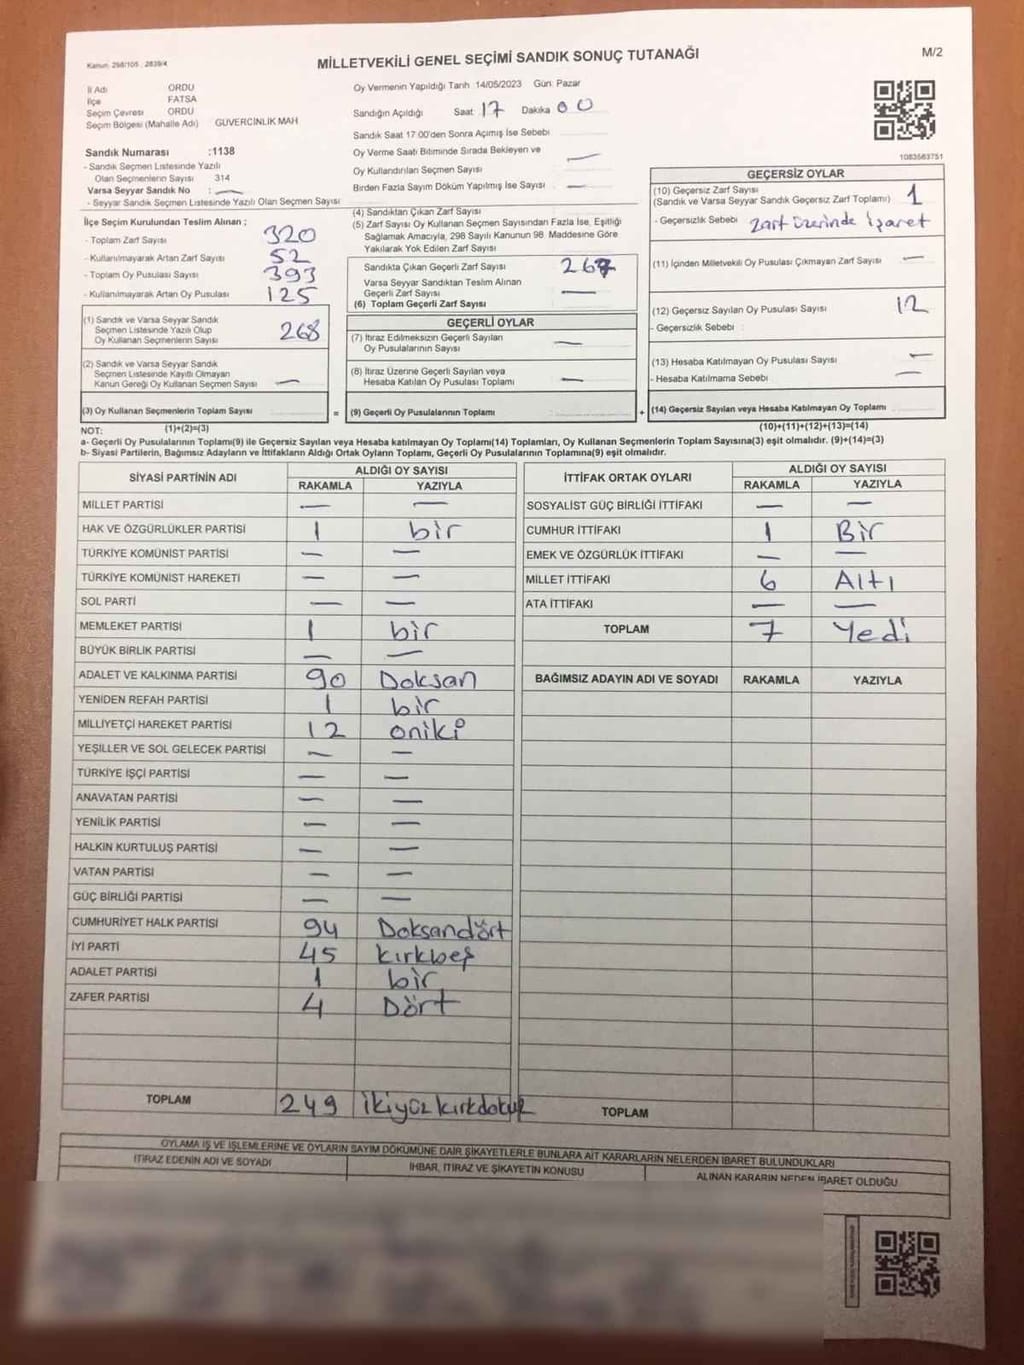 Kanun: 298/105 , 2839/4
MİLLETVEKİLİ GENEL SEÇİMİ SANDIK SONUÇ TUTANAĞI
M/2
İl Adı ORDU
İlçe FATSA
Seçim Çevresi ORDU
Seçim Bölgesi (Mahalle Adı) GÜVERCİNLİK MAH
Sandık Numarası :1138
- Sandık Seçmen Listesinde Yazılı
Olan Seçmenlerin Sayısı 314
Varsa Seyyar Sandık No : —
- Seyyar Sandık Seçmen Listesinde Yazılı Olan Seçmen Sayısı
Oy Vermenin Yapıldığı Tarih 14/05/2023 Gün: Pazar
Sandığın Açıldığı Saat 17 Dakika 00
Sandık Saat 17:00'den Sonra Açımış İse Sebebi
Oy Verme Saati Bitiminde Sırada Bekleyen ve
Oy Kullandırılan Seçmen Sayısı —
Birden Fazla Sayım Döküm Yapılmış İse Sayısı —
1083563751
İlçe Seçim Kurulundan Teslim Alınan ;
- Toplam Zarf Sayısı 320
- Kullanılmayarak Artan Zarf Sayısı 52
- Toplam Oy Pusulası Sayısı 393
- Kullanılmayarak Artan Oy Pusulası 125
(1) Sandık ve Varsa Seyyar Sandık
Seçmen Listesinde Yazılı Olup
Oy Kullanan Seçmenlerin Sayısı 268
(2) Sandık ve Varsa Seyyar Sandık
Seçmen Listesinde Kayıtlı Olmayan
Kanun Gereği Oy Kullanan Seçmen Sayısı —
(3) Oy Kullanan Seçmenlerin Toplam Sayısı
=
(4) Sandıktan Çıkan Zarf Sayısı
(5) Zarf Sayısı Oy Kullanan Seçmen Sayısından Fazla İse, Eşitliği
Sağlamak Amacıyla, 298 Sayılı Kanunun 98. Maddesine Göre
Yakılarak Yok Edilen Zarf Sayısı
Sandıkta Çıkan Geçerli Zarf Sayısı 267
Varsa Seyyar Sandıktan Teslim Alınan
Geçerli Zarf Sayısı —
(6) Toplam Geçerli Zarf Sayısı
GEÇERLİ OYLAR
(7) İtiraz Edilmeksizin Geçerli Sayılan
Oy Pusulalarının Sayısı —
(8) İtiraz Üzerine Geçerli Sayılan veya
Hesaba Katılan Oy Pusulası Toplamı —
(9) Geçerli Oy Pusulalarının Toplamı
+
GEÇERSİZ OYLAR
(10) Geçersiz Zarf Sayısı
(Sandık ve Varsa Seyyar Sandık Geçersiz Zarf Toplamı) 1
- Geçersizlik Sebebi zarf üzerinde işaret
(11) İçinden Milletvekili Oy Pusulası Çıkmayan Zarf Sayısı —
(12) Geçersiz Sayılan Oy Pusulası Sayısı 12
- Geçersizlik Sebebi :
(13) Hesaba Katılmayan Oy Pusulası Sayısı —
- Hesaba Katılmama Sebebi —
(14) Geçersiz Sayılan veya Hesaba Katılmayan Oy Toplamı
NOT: (1)+(2)=(3) (10)+(11)+(12)+(13)=(14)
a- Geçerli Oy Pusulalarının Toplamı(9) ile Geçersiz Sayılan veya Hesaba katılmayan Oy Toplamı(14) Toplamları, Oy Kullanan Seçmenlerin Toplam Sayısına(3) eşit olmalıdır. (9)+(14)=(3)
b- Siyasi Partilerin, Bağımsız Adayların ve İttifakların Aldığı Ortak Oyların Toplamı, Geçerli Oy Pusulalarının Toplamına(9) eşit olmalıdır.
SİYASİ PARTİNİN ADI ALDIĞI OY SAYISI
RAKAMLA YAZIYLA
MİLLET PARTİSİ — —
HAK VE ÖZGÜRLÜKLER PARTİSİ 1 bir
TÜRKİYE KOMÜNİST PARTİSİ — —
TÜRKİYE KOMÜNİST HAREKETİ — —
SOL PARTİ — —
MEMLEKET PARTİSİ 1 bir
BÜYÜK BİRLİK PARTİSİ — —
ADALET VE KALKINMA PARTİSİ 90 Doksan
YENİDEN REFAH PARTİSİ 1 bir
MİLLİYETÇİ HAREKET PARTİSİ 12 oniki
YEŞİLLER VE SOL GELECEK PARTİSİ — —
TÜRKİYE İŞÇİ PARTİSİ — —
ANAVATAN PARTİSİ — —
YENİLİK PARTİSİ — —
HALKIN KURTULUŞ PARTİSİ — —
VATAN PARTİSİ — —
GÜÇ BİRLİĞİ PARTİSİ — —
CUMHURİYET HALK PARTİSİ 94 Doksandört
İYİ PARTİ 45 kırkbeş
ADALET PARTİSİ 1 bir
ZAFER PARTİSİ 4 Dört
TOPLAM 249 ikiyüzkırkdokuz
İTTİFAK ORTAK OYLARI ALDIĞI OY SAYISI
RAKAMLA YAZIYLA
SOSYALİST GÜÇ BİRLİĞİ İTTİFAKI — —
CUMHUR İTTİFAKI 1 Bir
EMEK VE ÖZGÜRLÜK İTTİFAKI — —
MİLLET İTTİFAKI 6 Altı
ATA İTTİFAKI — —
TOPLAM 7 Yedi
BAĞIMSIZ ADAYIN ADI VE SOYADI RAKAMLA YAZIYLA
TOPLAM
OYLAMA İŞ VE İŞLEMLERİNE VE OYLARIN SAYIM DÖKÜMÜNE DAİR ŞİKAYETLERLE BUNLARA AİT KARARLARIN NELERDEN İBARET BULUNDUKLARI
İTİRAZ EDENİN ADI VE SOYADI İHBAR, İTİRAZ VE ŞİKAYETİN KONUSU ALINAN KARARIN NEDEN İBARET OLDUĞU